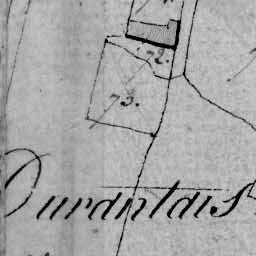 72.
73.
Durantais